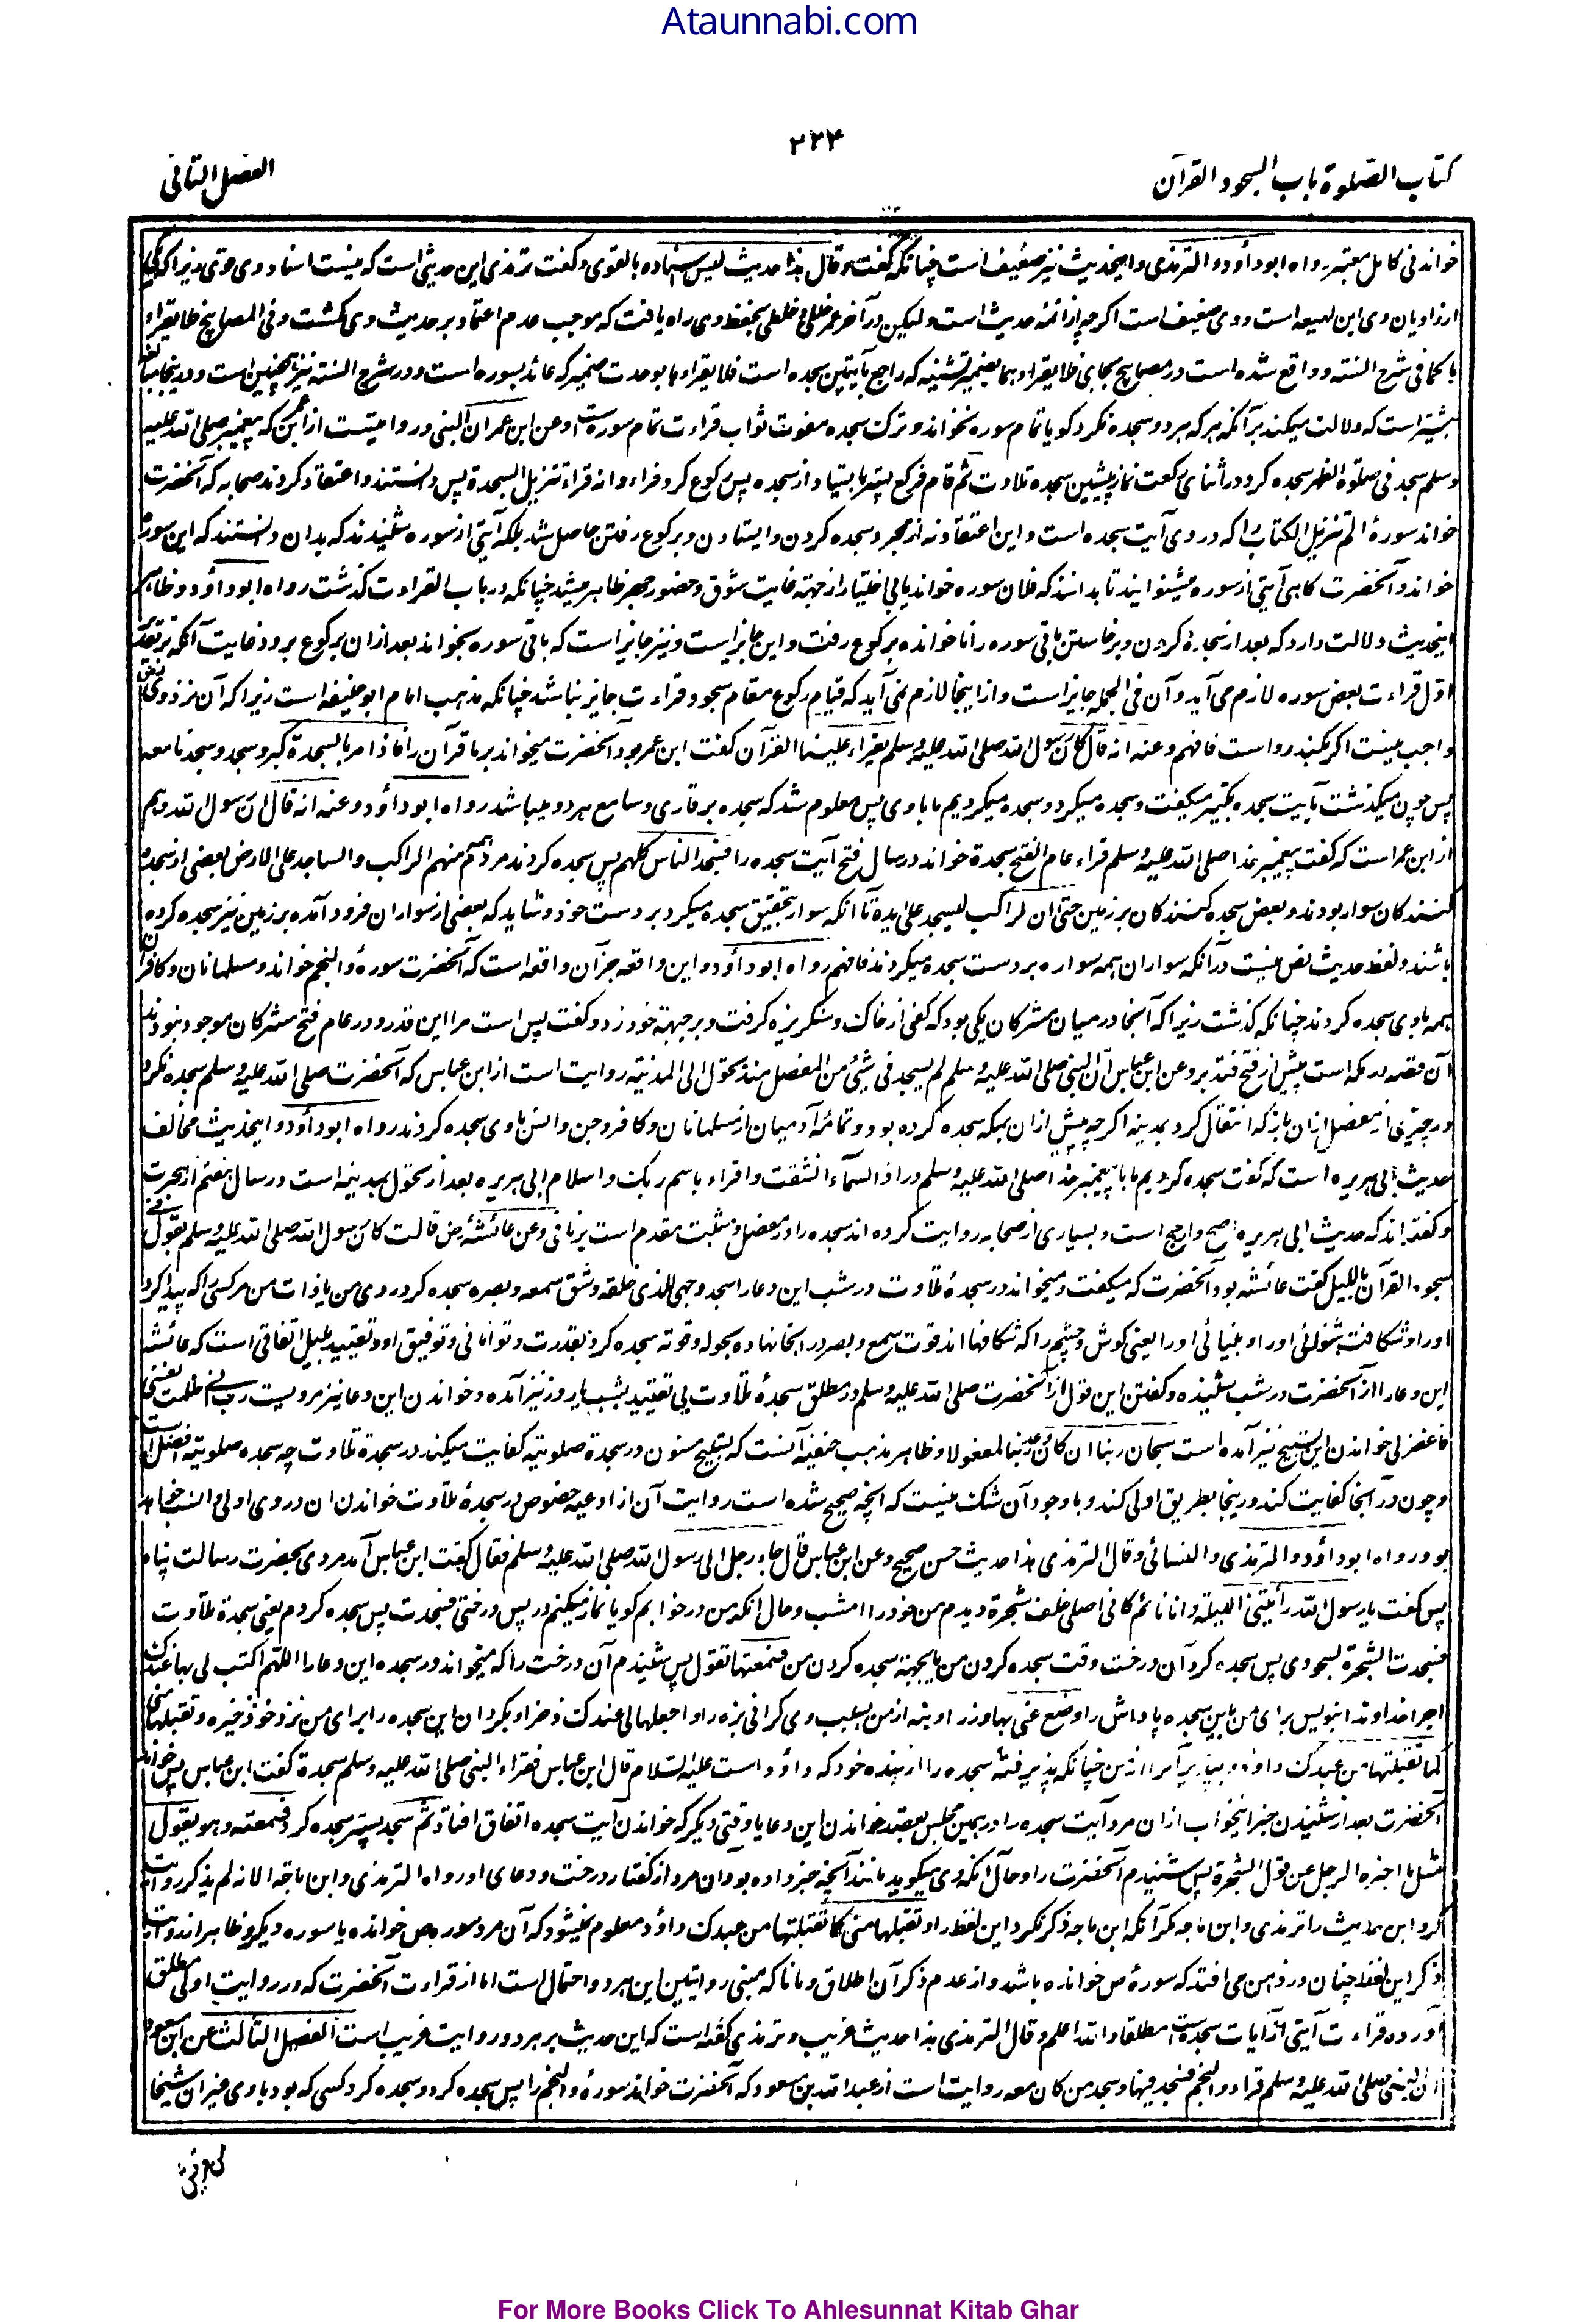 Ataunnabi.com
۲۳۴
کتاب الصّلوة باب السجود القرآن
الفصل الثانی
خواند فی کامل معتبر رواه ابوداؤد والترمذی و اینحدیث نیز ضعیف است چنانکه گفت وقال هذا حدیث لیس اسناده بالقوی و گفت ترمذی این حدیثی است که نیست اسناد وی قوی زیرا که یکی
از راویان وی ابن لهیعه است و وی ضعیف است اگرچه از ائمه حدیث است ولیکن در آخر عمر خللی و خلطی بحفظ وی راه یافت که موجب عدم اعتماد بر حدیث وی گشت و فی المصابیح فلا یقرأ
ها کما فی شرح السنته و واقع شده است در مصابیح بجای فلا یقرأهما بضمیر تثنیه که راجع بآیتین سجده است فلا یقراءها بوحدت ضمیر که عائد بسوره است و در شرح السنته نیز همچنین است و در اینجا مبالغه
بیشتر است که دلالت میکند بر آنکه هر که هر دو سجده نکرد گویا تمام سوره نخواند و ترک سجده مفوت ثواب قراءت تمام سوره است وعن ابن عمر ان النبی در روایتست از ابن عمر که پیغمبر صلی الله علیه
وسلم سجد فی صلوة الظهر سجده کرد در اثنای رکعت نماز پیشین سجده تلاوت ثم قام فرکع پستر بایستاد از سجده پس رکوع کرد فراءوا انه قراء تنزیل السجدة پس دانستند و اعتقاد کردند صحابه که آنحضرت
خواند سورهٔ الم تنزیل الکتاب را که در وی آیت سجده است و این اعتقاد نه از مجرد سجده کردن و ایستادن و برکوع رفتن حاصل شد بلکه آیتی از سوره شنیدند که بدان دانستند که این سوره
خواند و آنحضرت گاهی آیتی از سوره میشنوانید تا بدانند که فلان سوره خواند یا بی اختیار از جهت غایت شوق و حضور جهر ظاهر میشد چنانکه در باب القراءت گذشت رواه ابوداؤد و ظاهر
اینحدیث دلالت دارد که بعد از سجده کردن و برخاستن باقی سوره را ناخوانده برکوع رفت و این جایز است و نیز جایز است که باقی سوره بخواند بعد ازان برکوع برود غایت آنکه بر تقدیر
اول قراءت بعض سوره لازم می آید و آن فی الجمله جایز است و ازاینجا لازم نمی آید که قیام رکوع مقام سجود قراءت جایز نباشد چنانکه مذهب امام ابوحنیفه است زیرا که آن نزد وی
واجب نیست اگر بکند رواست فافهم وعنه انه قال کان رسول الله صلی الله علیه وسلم یقراء علینا القرآن گفت ابن عمر بود آنحضرت میخواند بر ما قرآن را فاذا مر بالسجدة کبر وسجد وسجدنا معه
پس چون میگذشت بآیت سجده تکبیر میگفت و سجده میکرد و سجده میکردیم ما با وی پس معلوم شد که سجده بر قاری و سامع هر دو میباشد رواه ابوداؤد وعنه انه قال ان رسول الله و هم
از ابن عمر است که گفت پیغمبر خدا صلی الله علیه وسلم قراء عام الفتح سجدة خواند در سال فتح آیت سجده را فسجد الناس کلهم پس سجده کردند مردم همه منهم الراکب والساجد علی الارض بعضی از سجده
کنندگان سوار بودند و بعض سجده کنندگان بر زمین حتی ان الراکب لیسجد علی یده تا آنکه سوار بتحقیق سجده میکرد بر دست خود و شاید که بعضی از سواران فرود آمده بر زمین نیز سجده کرده
باشند و لفظ حدیث نص نیست در آنکه سواران همه سواره بر دست سجده میکردند فافهم رواه ابوداؤد و این واقعه جز آن واقعه است که آنحضرت سورهٔ والنجم خواند و مسلمانان و کافران
همه با وی سجده کردند چنانکه گذشت زیرا که آنجا در میان مشرکان یکی بود که کفی از خاک و سنگریزه گرفت و بر جبهه خود زد و گفت بس است مرا این قدر و در عام فتح مشرکان موجود نبودند
آن قصه در مکه است پیش از فتح فتدبر وعن ابن عباس ان النبی صلی الله علیه وسلم لم یسجد فی شیئ من المفصل منذ تحول الی المدینة روایت است از ابن عباس که آنحضرت صلی الله علیه وسلم سجده نکرد
در چیزی از مفصل ازان باز که انتقال کرد بمدینه اگرچه پیش ازان بمکه سجده کرده بود و تمامهٔ آدمیان از مسلمانان و کافر و جن و انس با وی سجده کردند رواه ابوداؤد و اینحدیث مخالف
حدیث ابی هریره است که گفت سجده کردیم ما با پیغمبر خدا صلی الله علیه وسلم در اذا السماء انشقت و اقراء باسم ربک و اسلام ابی هریره بعد از تحول بمدینه است در سال هفتم از هجرت
و گفته اند که حدیث ابی هریره اصح و ارجح است و بسیاری از صحابه روایت کرده اند سجده را در مفصل و مثبت مقدم است بر نافی وعن عائشة رض قالت کان رسول الله صلی الله علیه وسلم یقول فی
سجود القرآن باللیل گفت عائشه بود آنحضرت که میگفت و میخواند در سجدهٔ تلاوت در شب این دعا را سجد وجهی للذی خلقه وشق سمعه وبصره سجده کرد روی من یا ذات من مر کسی را که پیدا کرد
او را و شگافت شنوائی او را و بینائی او را یعنی گوش و چشم را که شگافها اند قوت سمع و بصر در آنجا نهاده بحوله وقوته سجده کرد بقدرت و توانائی و توفیق او و تقیید بلیل اتفاقی است که عائشه
این دعا را از آنحضرت در شب شنیده و گفتن این قول از آنحضرت صلی الله علیه وسلم در مطلق سجدهٔ تلاوت بی تقیید بشب یا روز نیز آمده و خواندن این دعا نیز مرویست رب انی ظلمت نفسی
فاغفر لی خواندن این تسبیح نیز آمده است سبحان ربنا ان کان وعد ربنا لمفعولا و ظاهر مذهب حنفیه آنست که تسبیح مسنون در سجدة صلوتیه کفایت میکند در سجدة تلاوت چه سجده صلوتیه افضل است
و چون در آنجا کفایت کند در اینجا بطریق اولی کند و با وجود آن شک نیست که آنچه صحیح شده است روایت آن از ادعیه بخصوص در سجدهٔ تلاوت خواندن آن در وی اولی و انسب خواهد
بود رواه ابوداؤد والترمذی والنسائی وقال الترمذی هذا حدیث حسن صحیح وعن ابن عباس قال جاء رجل الی رسول الله صلی الله علیه وسلم فقال گفت ابن عباس آمد مردی بحضرت رسالت پناه
پس گفت یا رسول الله رأیتنی اللیلة وانا نائم کانی اصلی خلف شجرة دیدم من خود را امشب و حال آنکه من در خوابم گویا نماز میکنم در پس درختی فسجدت پس سجده کردم یعنی سجدة تلاوت
فسجدت الشجرة لسجودی پس سجده کرد آن درخت وقت سجده کردن من یا بجهة سجده کردن من فسمعتها تقول پس شنیدم آن درخت را که میخواند در سجده این دعا را اللهم اکتب لی بها عندک
اجرا خداوندا بنویس برای من باین سجده پاداش را وضع عنی بها وزرا و بنه از من بسبب وی گرانی بزه را واجعلها لی عندک ذخرا و بگردان این سجده را برای من نزد خود ذخیره وتقبلها منی
کما تقبلتها من عبدک داود و بپذیر آنرا از من چنانکه پذیرفتهٔ سجده را از بنده خود که داؤد است علیه السلام قال ابن عباس فقراء النبی صلی الله علیه وسلم سجدة گفت ابن عباس پس خواند
آنحضرت بعد از شنیدن خبر اینخواب ازان مرد آیت سجده را در همین مجلس بقصد خواندن این دعا یا وقتی دیگر که خواندن آیت سجده اتفاق افتاد ثم سجد پستر سجده کرد فسمعته وهو یقول
مثل ما اخبره الرجل عن قول الشجرة پس شنیدم آنحضرت را و حال آنکه وی میگوید مانند آنچه خبر داده بود آن مرد از گفتار درخت و دعای او رواه الترمذی وابن ماجة الا انه لم یذکر روایت
کرد این حدیث را ترمذی و ابن ماجه مگر آنکه ابن ماجه ذکر نکرد این لفظ را وتقبلها منی کما تقبلتها من عبدک داؤد معلوم نمیشود که آن مرد سوره ص خوانده یا سوره دیگر و ظاهرا در روایت
ذکر این لفظ چنان در ذهن می افتد که سورهٔ ص خوانده باشد و از عدم ذکر آن اطلاق و مانا که مبنی روایتین این هر دو احتمال است اما از قراءت آنحضرت که در روایت اولی مطلق
آورده قراءت آیتی از آیات سجده است مطلقا والله اعلم وقال الترمذی هذا حدیث غریب و ترمذی گفته است که این حدیث بر هر دو روایت غریب است الفصل الثالث عن ابن مسعود
ان النبی صلی الله علیه وسلم قراء والنجم فسجد فیها وسجد من کان معه روایت است از عبدالله بن مسعود که آنحضرت خواند سورهٔ والنجم را پس سجده کرد و سجده کرد کسی که بود با وی غیر ان شیخا
For More Books Click To Ahlesunnat Kitab Ghar